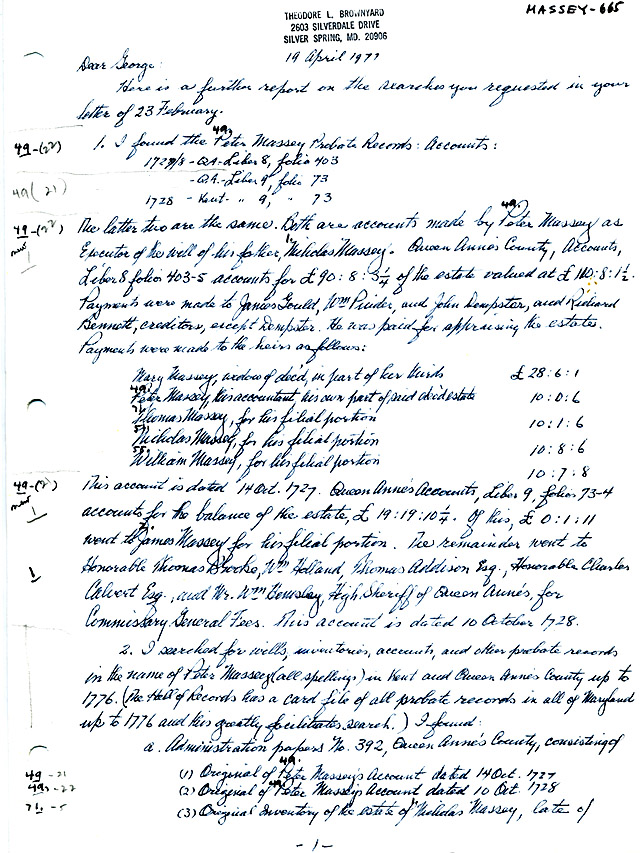 MASSEY-665
THEODORE L. BROWNYARD
2603 SILVERDALE DRIVE
SILVER SPRING, MD. 20906
19 April 1977
Dear George:
Here is a further report on the searches you requested in your
letter of 23 February.
49-(22) 1. I found the 49, Peter Massey Probate Records: Accounts:
1727/8 - Q.A. - Liber 8, folio 403
49(21) - Q.A. - Liber 9, folio 73
1728 - Kent - " 9, " 73
49-(22) The latter two are the same. Both are accounts made by 49, Peter Massey as
Executor of the will of his father, Nicholas Massey. Queen Anne's County, Accounts,
Liber 8 folio 403-5 accounts for £90:8:3¼ of the estate valued at £110:8:1½.
Payments were made to James Gould, Wm Pinder, and John Dempster, and Richard
Bennett, creditors, except Dempster. He was paid for appraising the estate.
Payments were made to the heirs as follows:
Mary Massey, widow of dec'd, in part of her thirds £28:6:1
49, Peter Massey, his accountant, his own part of said dec'd estate 10:0:6
Thomas Massey, for his filial portion 10:1:6
Nicholas Massey, for his filial portion 10:8:6
William Massey, for his filial portion 10:7:8
This account is dated 14 Oct. 1727. Queen Anne's Accounts, Liber 9, folios 73-4
accounts for the balance of the estate, £19:19:10¼. Of this, £0:1:11
went to James Massey for his filial portion. The remainder went to
Honorable Thomas Brooke, Wm Holland, Thomas Addison Esq., Honorable Charles
Calvert Esq., and Mr. Wm Hemsley, High Sheriff of Queen Anne's, for
Commissary General Fees. This account is dated 10 October 1728.
2. I searched for wills, inventories, accounts, and other probate records
in the name of Peter Massey (all spellings) in Kent and Queen Anne's County up to
1776. (The Hall of Records has a card file of all probate records in all of Maryland
up to 1776 and this greatly facilitates search.) I found:
a. Administration papers No. 392, Queen Anne's County, consisting of
49-21 (1) Original of 49, Peter Massey's Account dated 14 Oct. 1727
49,-22 (2) Original of 49 Peter Massey's Account dated 10 Oct. 1728
71,-5 (3) Original Inventory of the estate of Nicholas Massey, late of
-1-